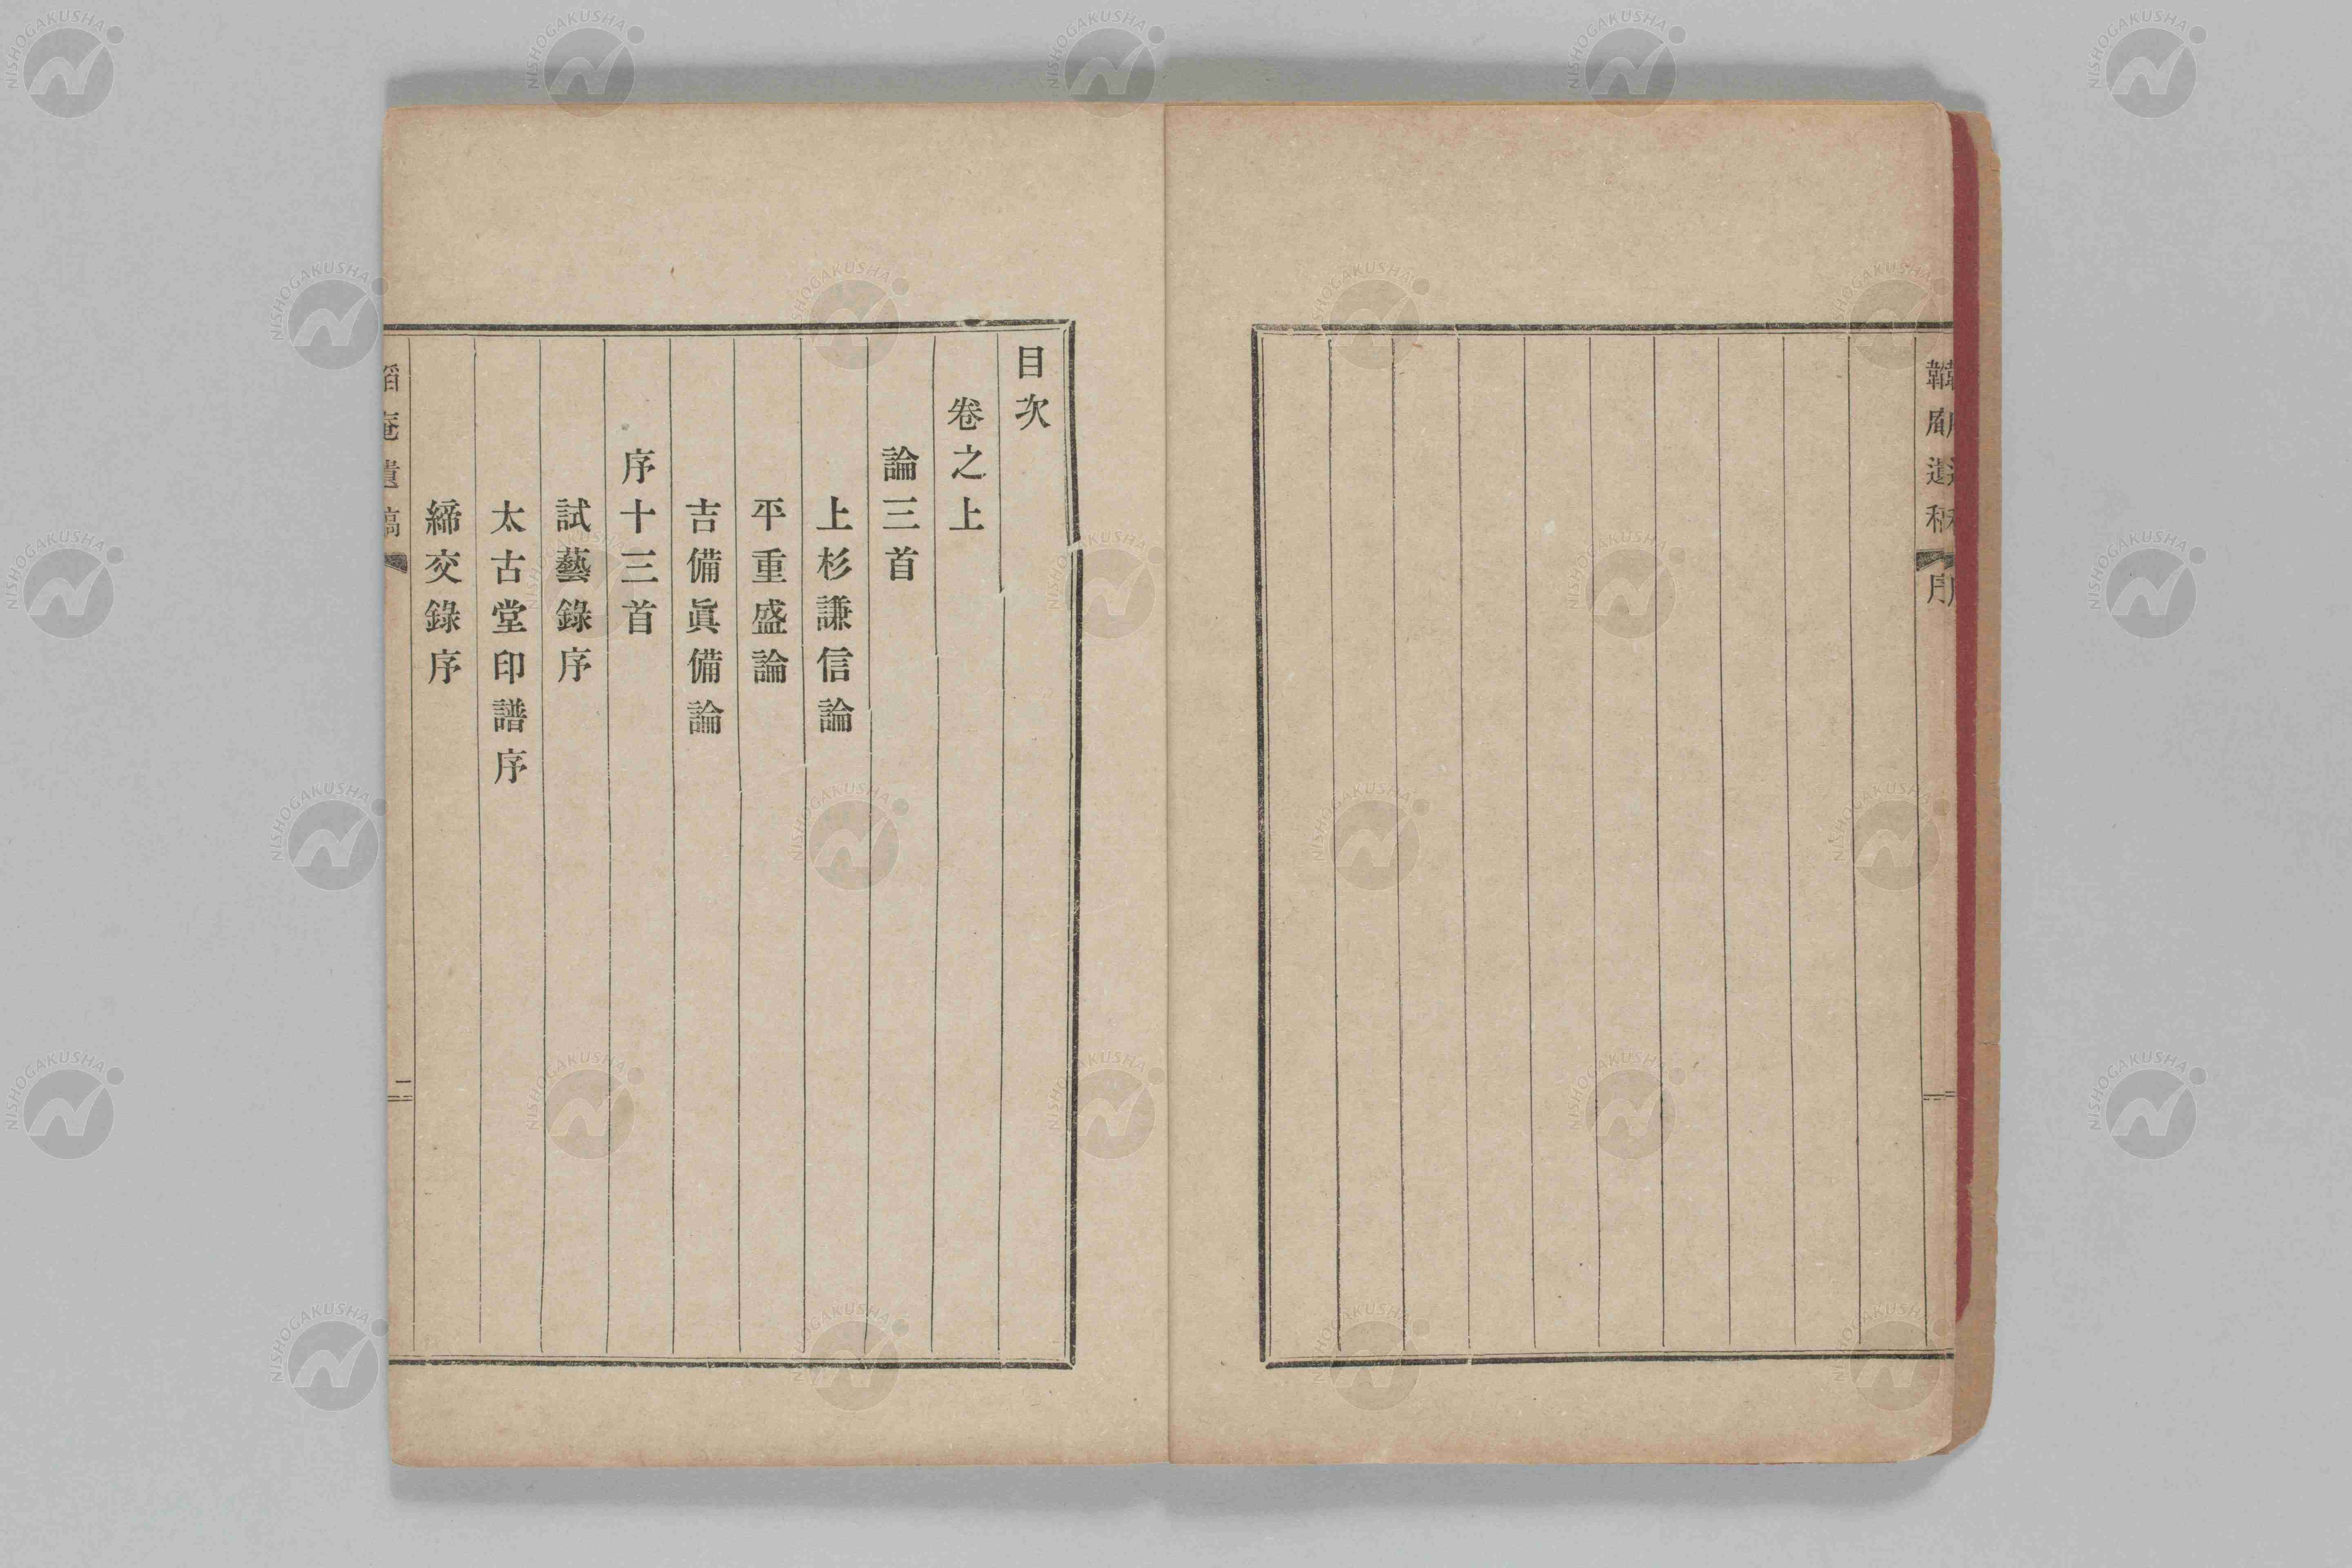 序
目次
卷之上
論三首
上杉謙信論
平重盛論
吉備眞備論
序十三首
試藝錄序
太古堂印譜序
締交錄序
庵遺稿
二
NISHOGAKUSHA